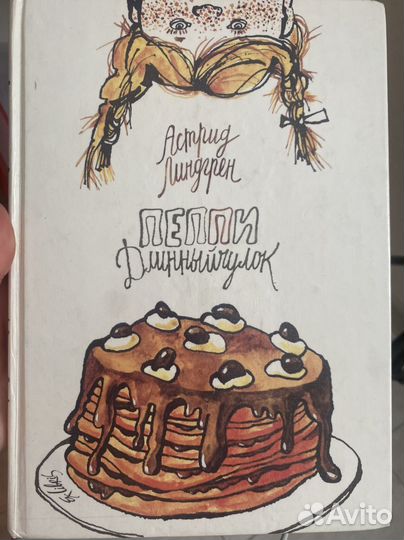 Астрид
Линдгрен
ПЕППИ
Длинныйчулок
Avito